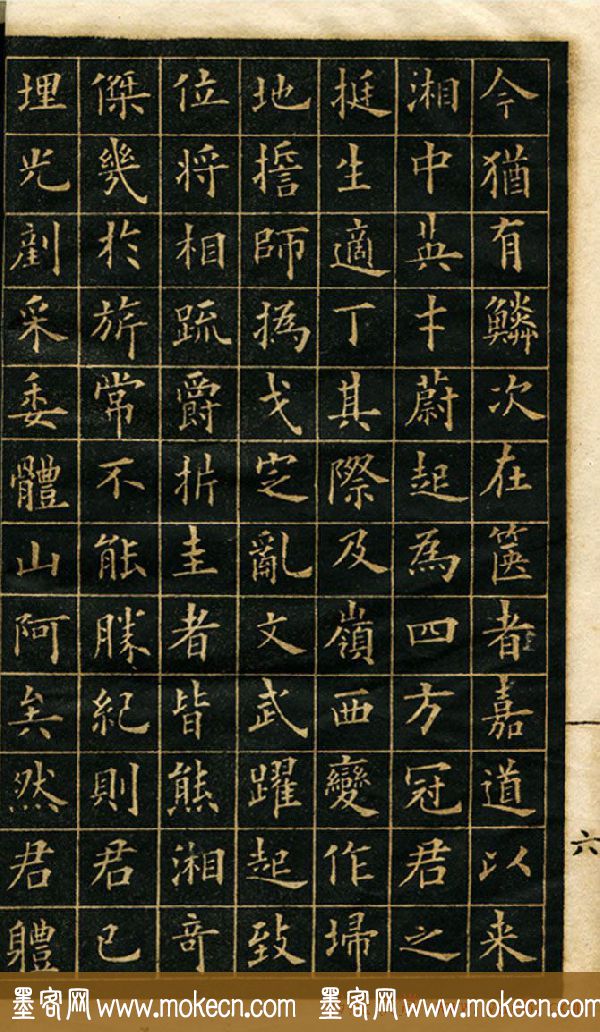 今猶有鱗次在篋者嘉道以来
湘中英才蔚起為四方冠君之
挺生適丁其際及嶺西變作埽
地師撝戈定亂文武躍起致
位将相疏爵析圭者皆熊湘奇
傑幾於旂常不能勝紀則君已
埋光剷采委體山阿矣然君軆
六
墨客网 www.mokecn.com 墨客网 www.mokecn.com